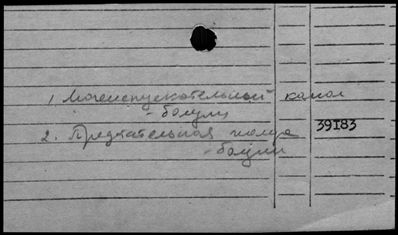 1. Мочеиспускательный канал
- бощули
2. Предстательная железа
- бощули
39I83